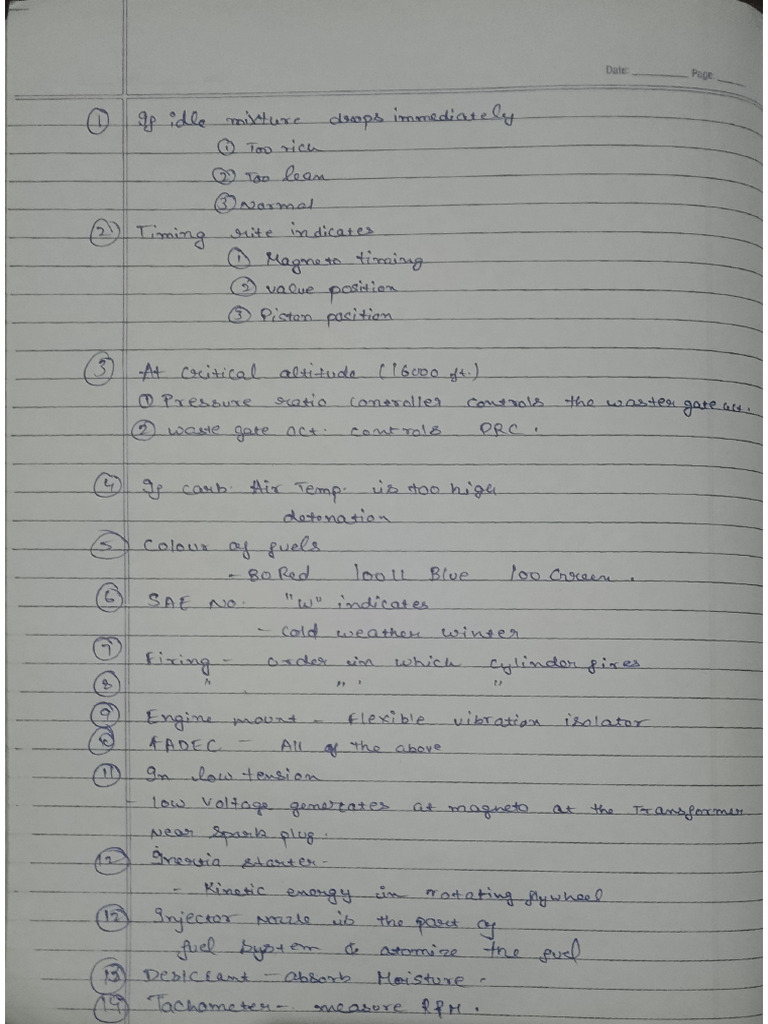 Date: ______ Page: ____
① If idle mixture drops immediately
① Too rich
② Too lean
③ Normal
② Timing rite indicates
① Magneto timing
② value position
③ Piston position
③ At critical altitude (16000 ft.)
① Pressure ratio controller controls the waster gate act.
② waste gate act. controls PRC.
④ If carb. Air Temp. is too high
detonation
⑤ Colour of fuels
- 80 Red 100 11 Blue 100 Green.
⑥ SAE No. "W" indicates
- cold weather winter
⑦ Firing - order in which cylinder fires
⑧ " " " "
⑨ Engine mount - flexible vibration isolator
⑧ FADEC - All of the above
⑪ In low tension
- low voltage generates at magneto at the Transformer
near spark plug.
⑫ Inertia starter -
- Kinetic energy in rotating flywheel
⑫ Injector Nozzle is the part of
fuel system & atomize the fuel
⑬ Desiccant - absorb Moisture.
⑭ Tachometer - measure RPM.